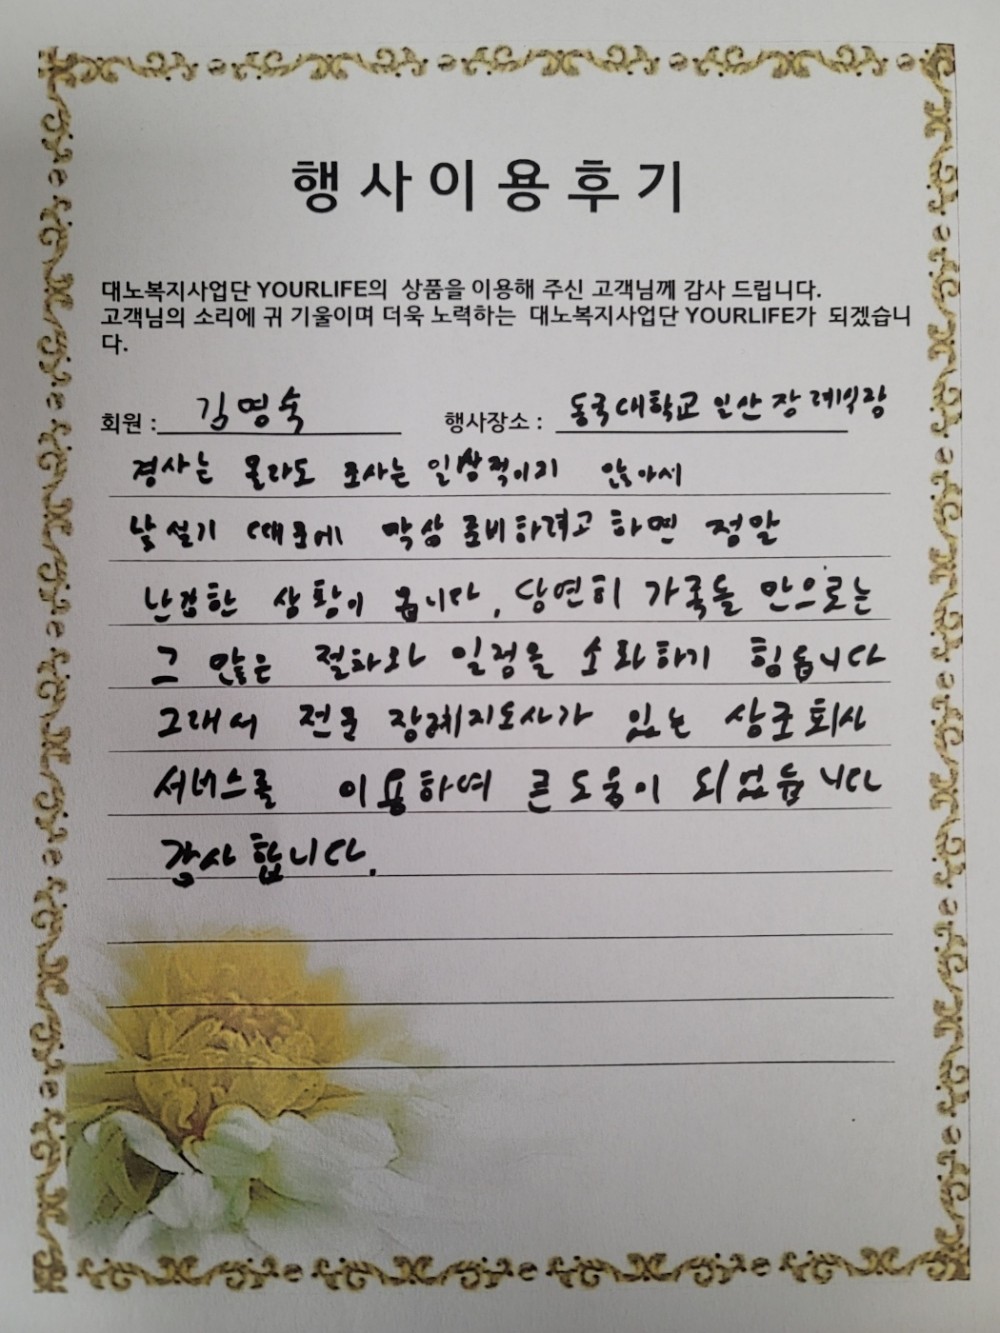 행사이용후기
대노복지사업단 YOURLIFE의 상품을 이용해 주신 고객님께 감사 드립니다.
고객님의 소리에 귀 기울이며 더욱 노력하는 대노복지사업단 YOURLIFE가 되겠습니
다.
회원 : 김영숙 행사장소 : 동국대학교 일산 장례식장
경사는 몰라도 조사는 일상적이지 않아서
낯설기 때문에 막상 준비하려고 하면 정말
난감한 상황이 옵니다. 당연히 가족들 만으로는
그 많은 절차와 일정을 소화하기 힘듭니다
그래서 전문 장례지도사가 있는 상조회사
서비스를 이용하여 큰 도움이 되었습니다
감사합니다.